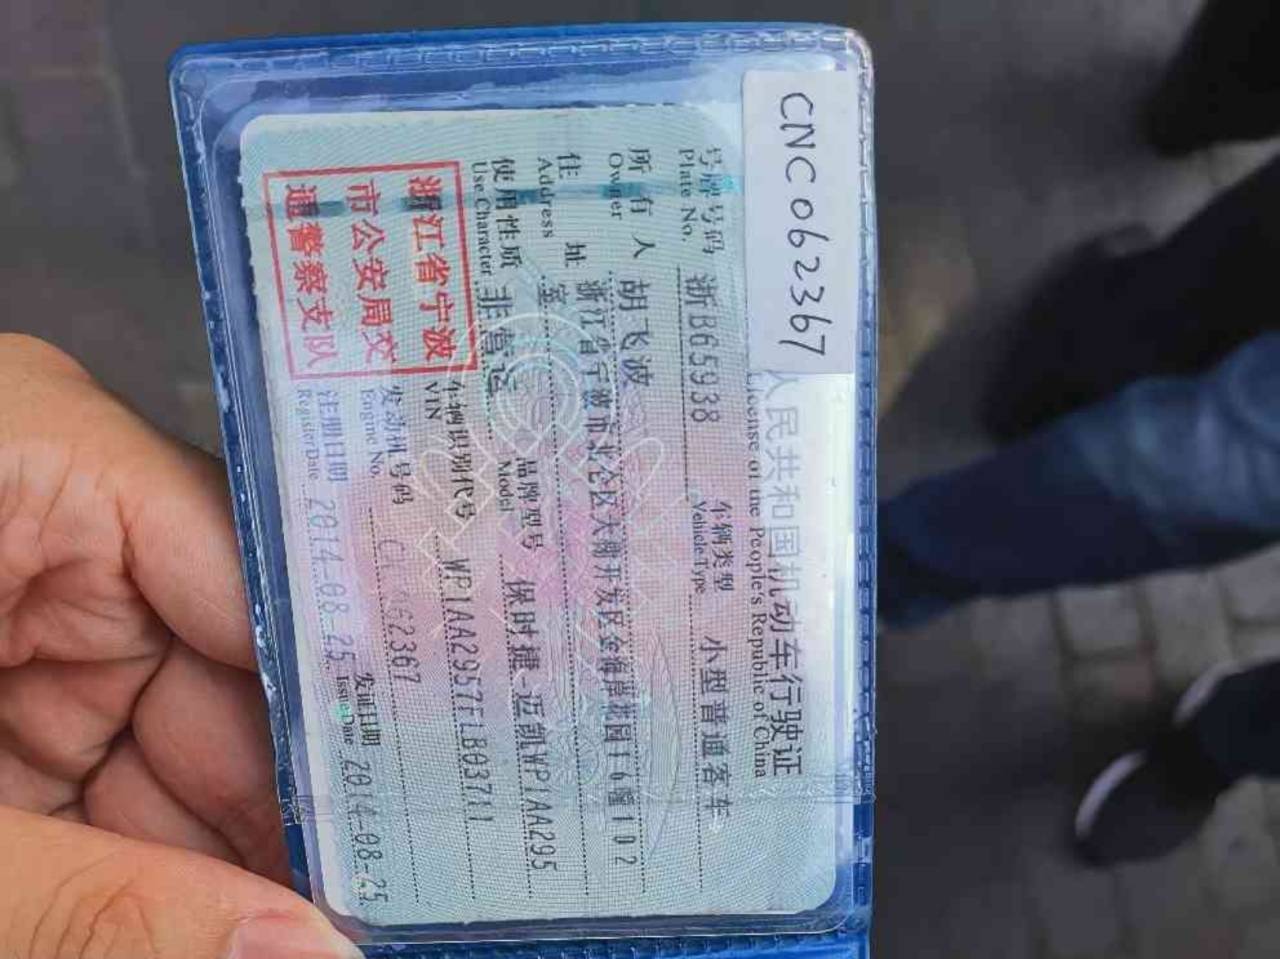 CNC062367
人民共和国机动车行驶证
License of the People's Republic of China
号牌号码 浙B65938 车辆类型 小型普通客车
Plate No. Vehicle Type
所有人 胡飞波
Owner
住址 浙江省宁波市北仑区大榭开发区金海岸花园16幢102
Address 室
使用性质 非营运 品牌型号 保时捷-迈凯WP1AA295
Use Character Model
浙江省宁波
市公安局交
通警察支队
车辆识别代号 WP1AA2957FLB03711
VIN
发动机号码 062367
Engine No.
注册日期 2014-08-25 发证日期 2014-08-25
Register Date Issue Date